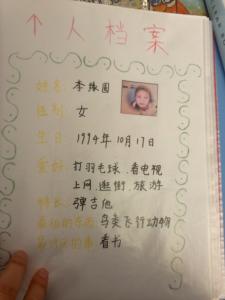 个人档案
姓名: 李缘园
性别: 女
生日: 1994年10月17日
爱好: 打羽毛球、看电视
上网、逛街、旅游
特长: 弹吉他
害怕的东西: 鸟类飞行动物
看书